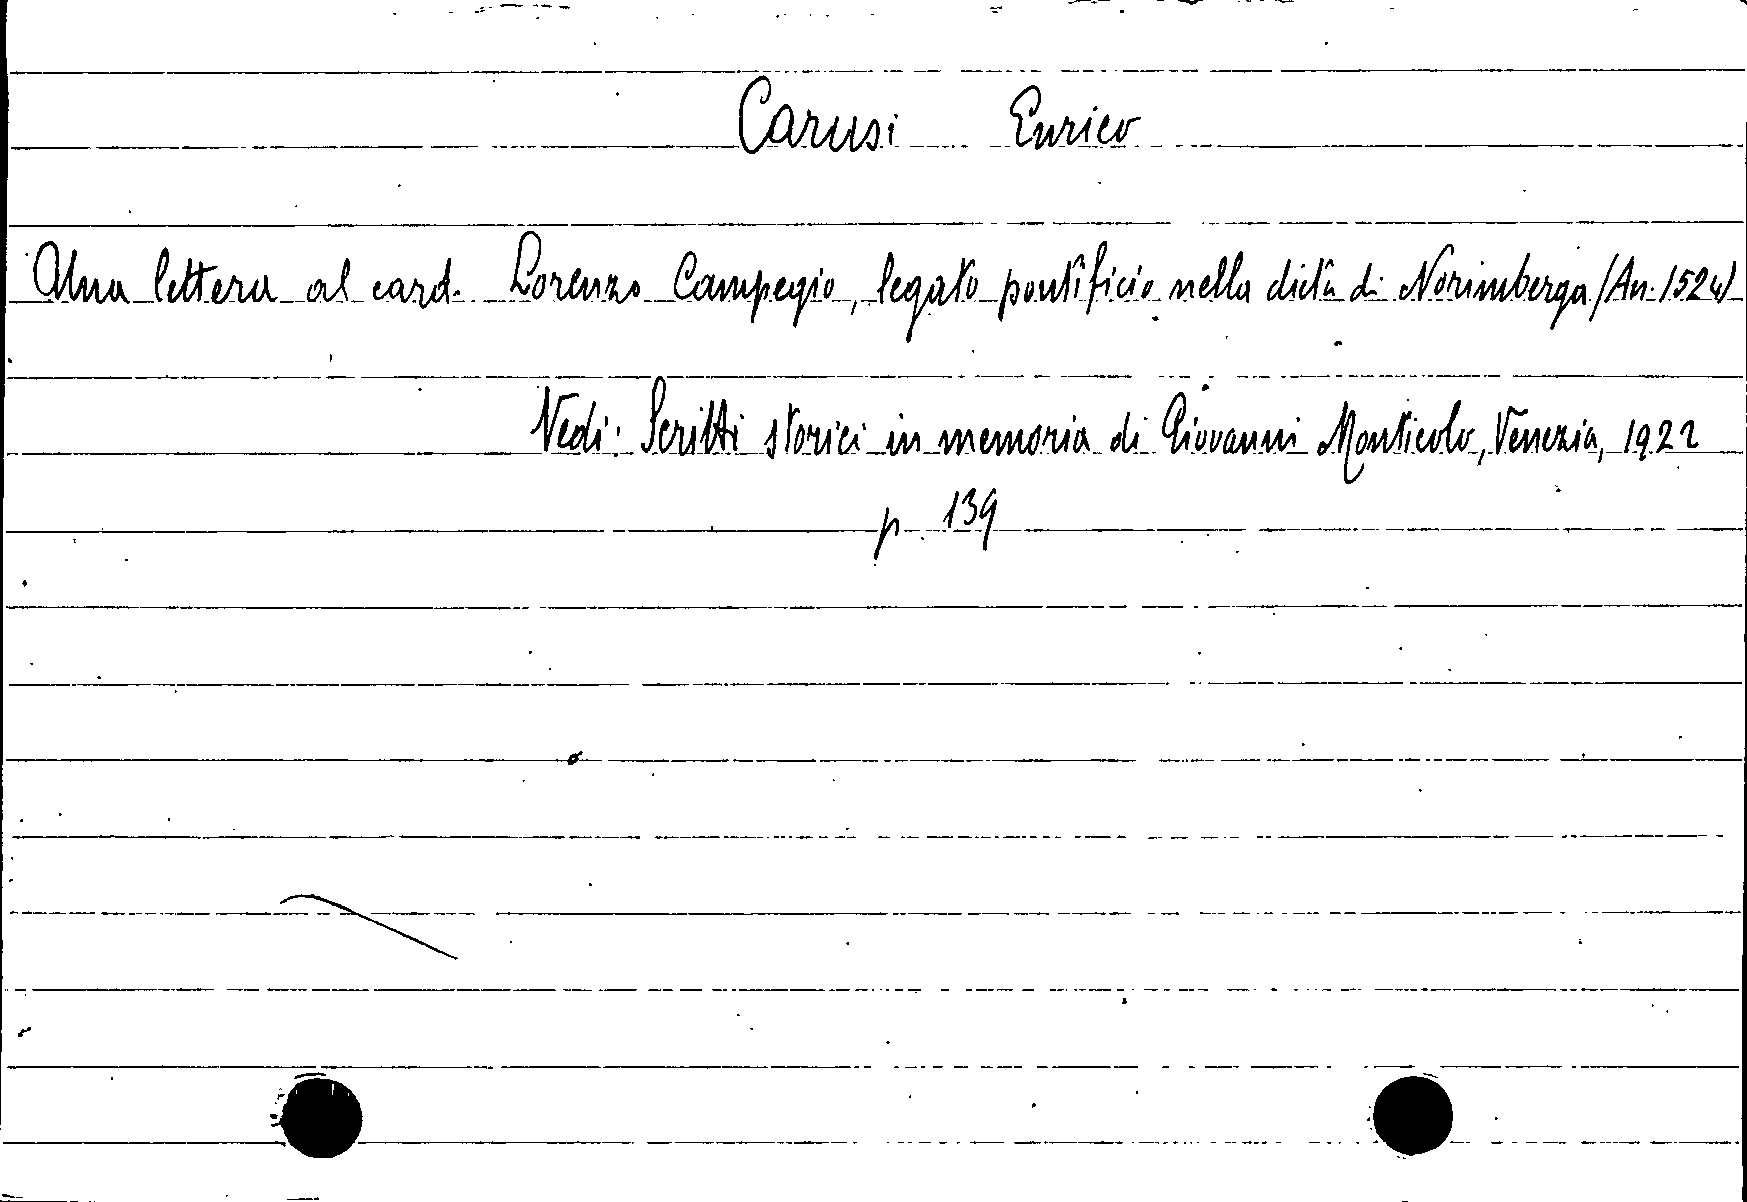 Carusi Enrico
Una lettera al card. Lorenzo Campegio, legato pontificio nella dieta di Norimberga (An. 1524)
Vedi: Scritti storici in memoria di Giovanni Monticolo, Venezia, 1922
p. 139